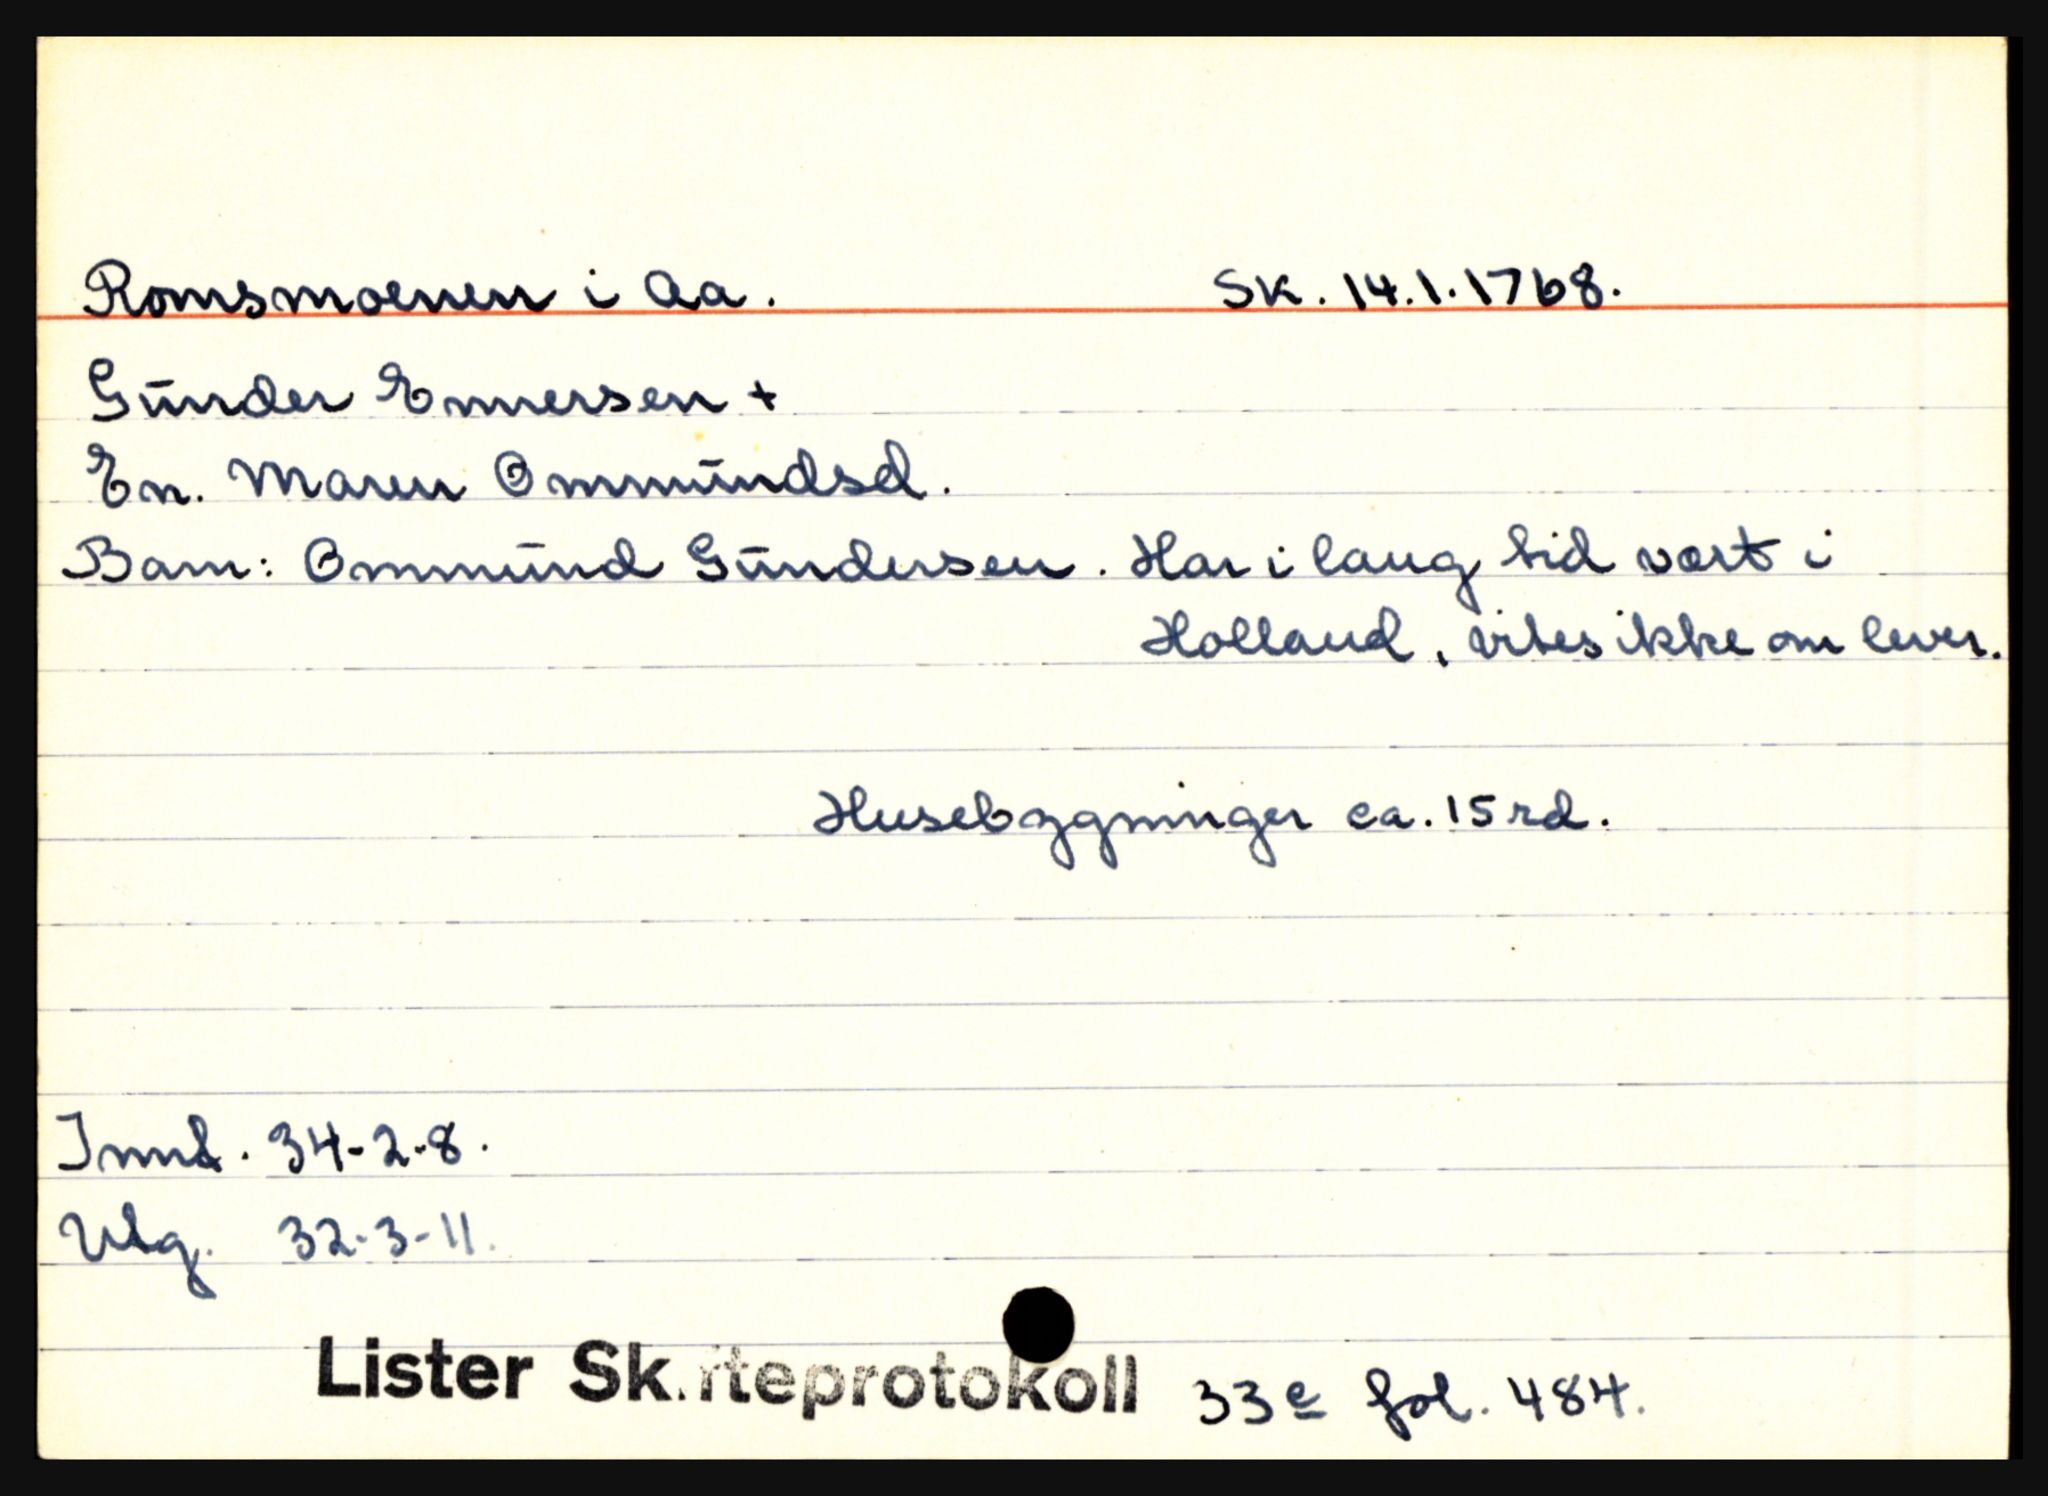 Romsmoenen i Aa. Sk. 14.1.1768.
Gunder Ennersen +
En. Maren Ommundsd.
Barn: Ommund Gundersen. Har i lang tid vært i
Holland, vites ikke om lever.
Husebygninger ca. 15 rd.
Innt. 34-2-8.
Utg. 32-3-11.
Lister Skifteprotokoll 33c fol. 484.